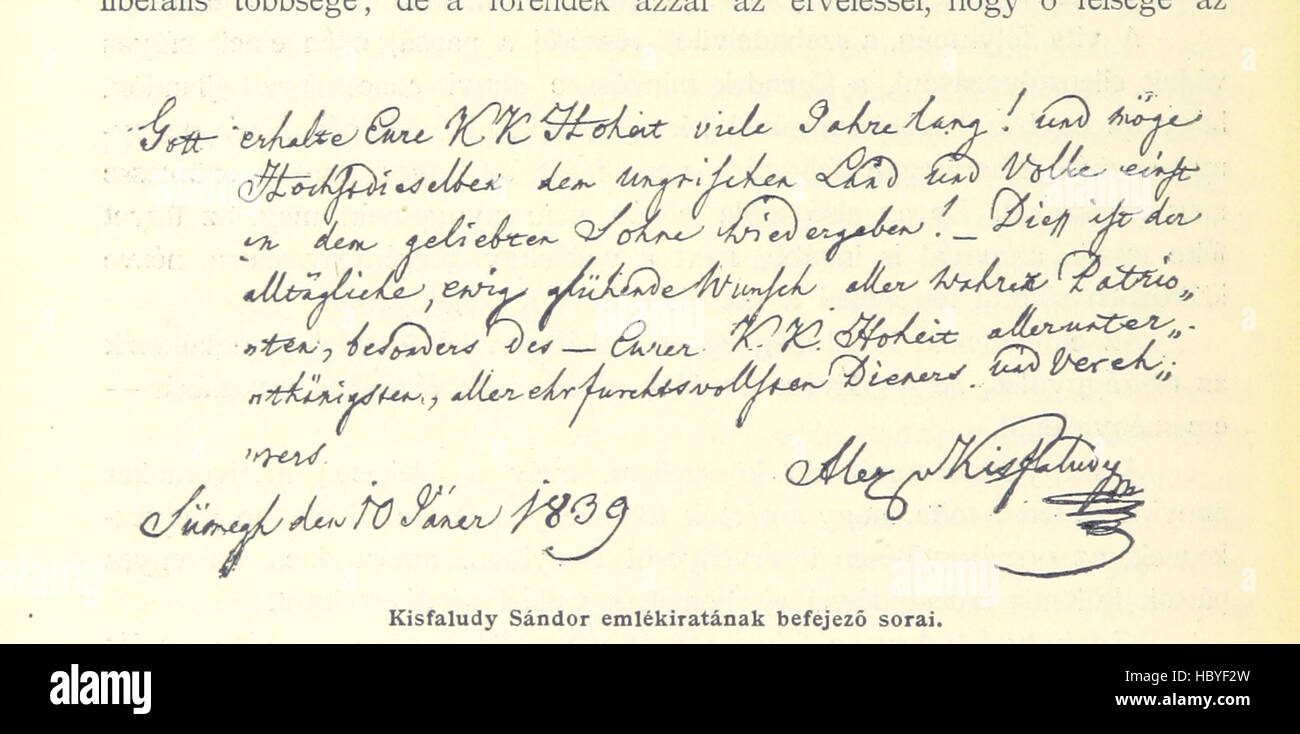 liberális többsége, de a főrendek azzal az érveléssel, hogy ő felsége az
Gott erhalte Eure K K Hoheit viele Jahre lang! und möge
Hochsdieselben dem ungrischen Land und Volke einst
in dem geliebten Sohne wiedergeben! – Diess ist der
alltägliche, ewig glühende Wunsch aller wahren Patrio„
„ten, besonders des – Eurer K. K. Hoheit allerunter„
„thänigsten, allerehrfurchtsvollsten Dieners und Vereh„
„rers
Alex v Kisfaludy
Sümegh den 10 Jäner 1839
Kisfaludy Sándor emlékiratának befejező sorai.
alamy
Image ID: HBYF2W
www.alamy.com